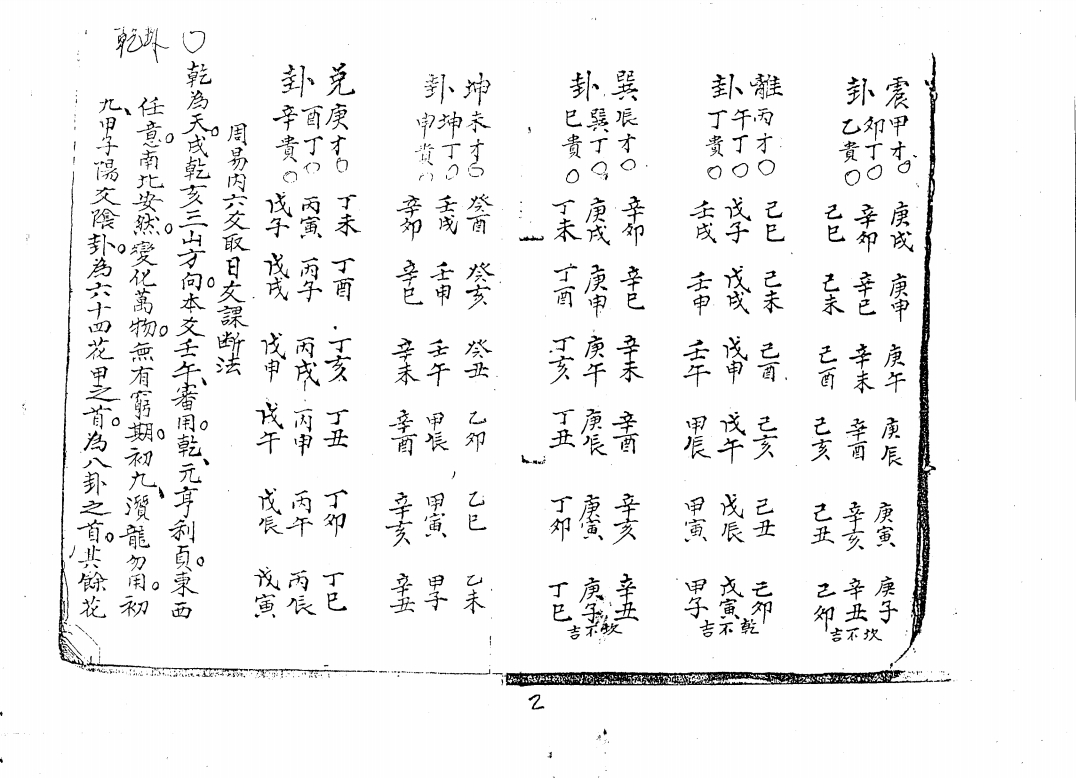 震甲才〇庚戌庚申庚午庚辰庚寅庚子
卦卯丁〇辛卯辛巳辛未辛酉辛亥辛丑
乙貴〇己巳己未己酉己亥己丑己卯
坎不吉
離丙才〇己巳己未己酉己亥己丑己卯
卦午丁〇戊子戊戌戊申戊午戊辰戊寅
丁貴〇壬戌壬申壬午甲辰甲寅甲子
乾不吉
巽辰才〇辛卯辛巳辛未辛酉辛亥辛丑
卦巽丁〇庚戌庚申庚午庚辰庚寅庚子
巳貴〇丁未丁酉丁亥丁丑丁卯丁巳
坎不吉
坤未才〇癸酉癸亥癸丑乙卯乙巳乙未
卦坤丁〇壬戌壬申壬午甲辰甲寅甲子
申貴〇辛卯辛巳辛未辛酉辛亥辛丑
兌庚才〇丁未丁酉丁亥丁丑丁卯丁巳
卦酉丁〇丙寅丙子丙戌丙申丙午丙辰
辛貴〇戊子戊戌戊申戊午戊辰戊寅
周易內六爻取日交課断法
乾卦
〇乾為天。戌乾亥三山方向。本爻壬午、審用乾、元亨利貞。東西
任意。南北安然。變化萬物。無有窮期。初九、潛龍勿用。初
九、甲子陽爻陰卦。為六十四花甲之首。為八卦之首。其餘花
2